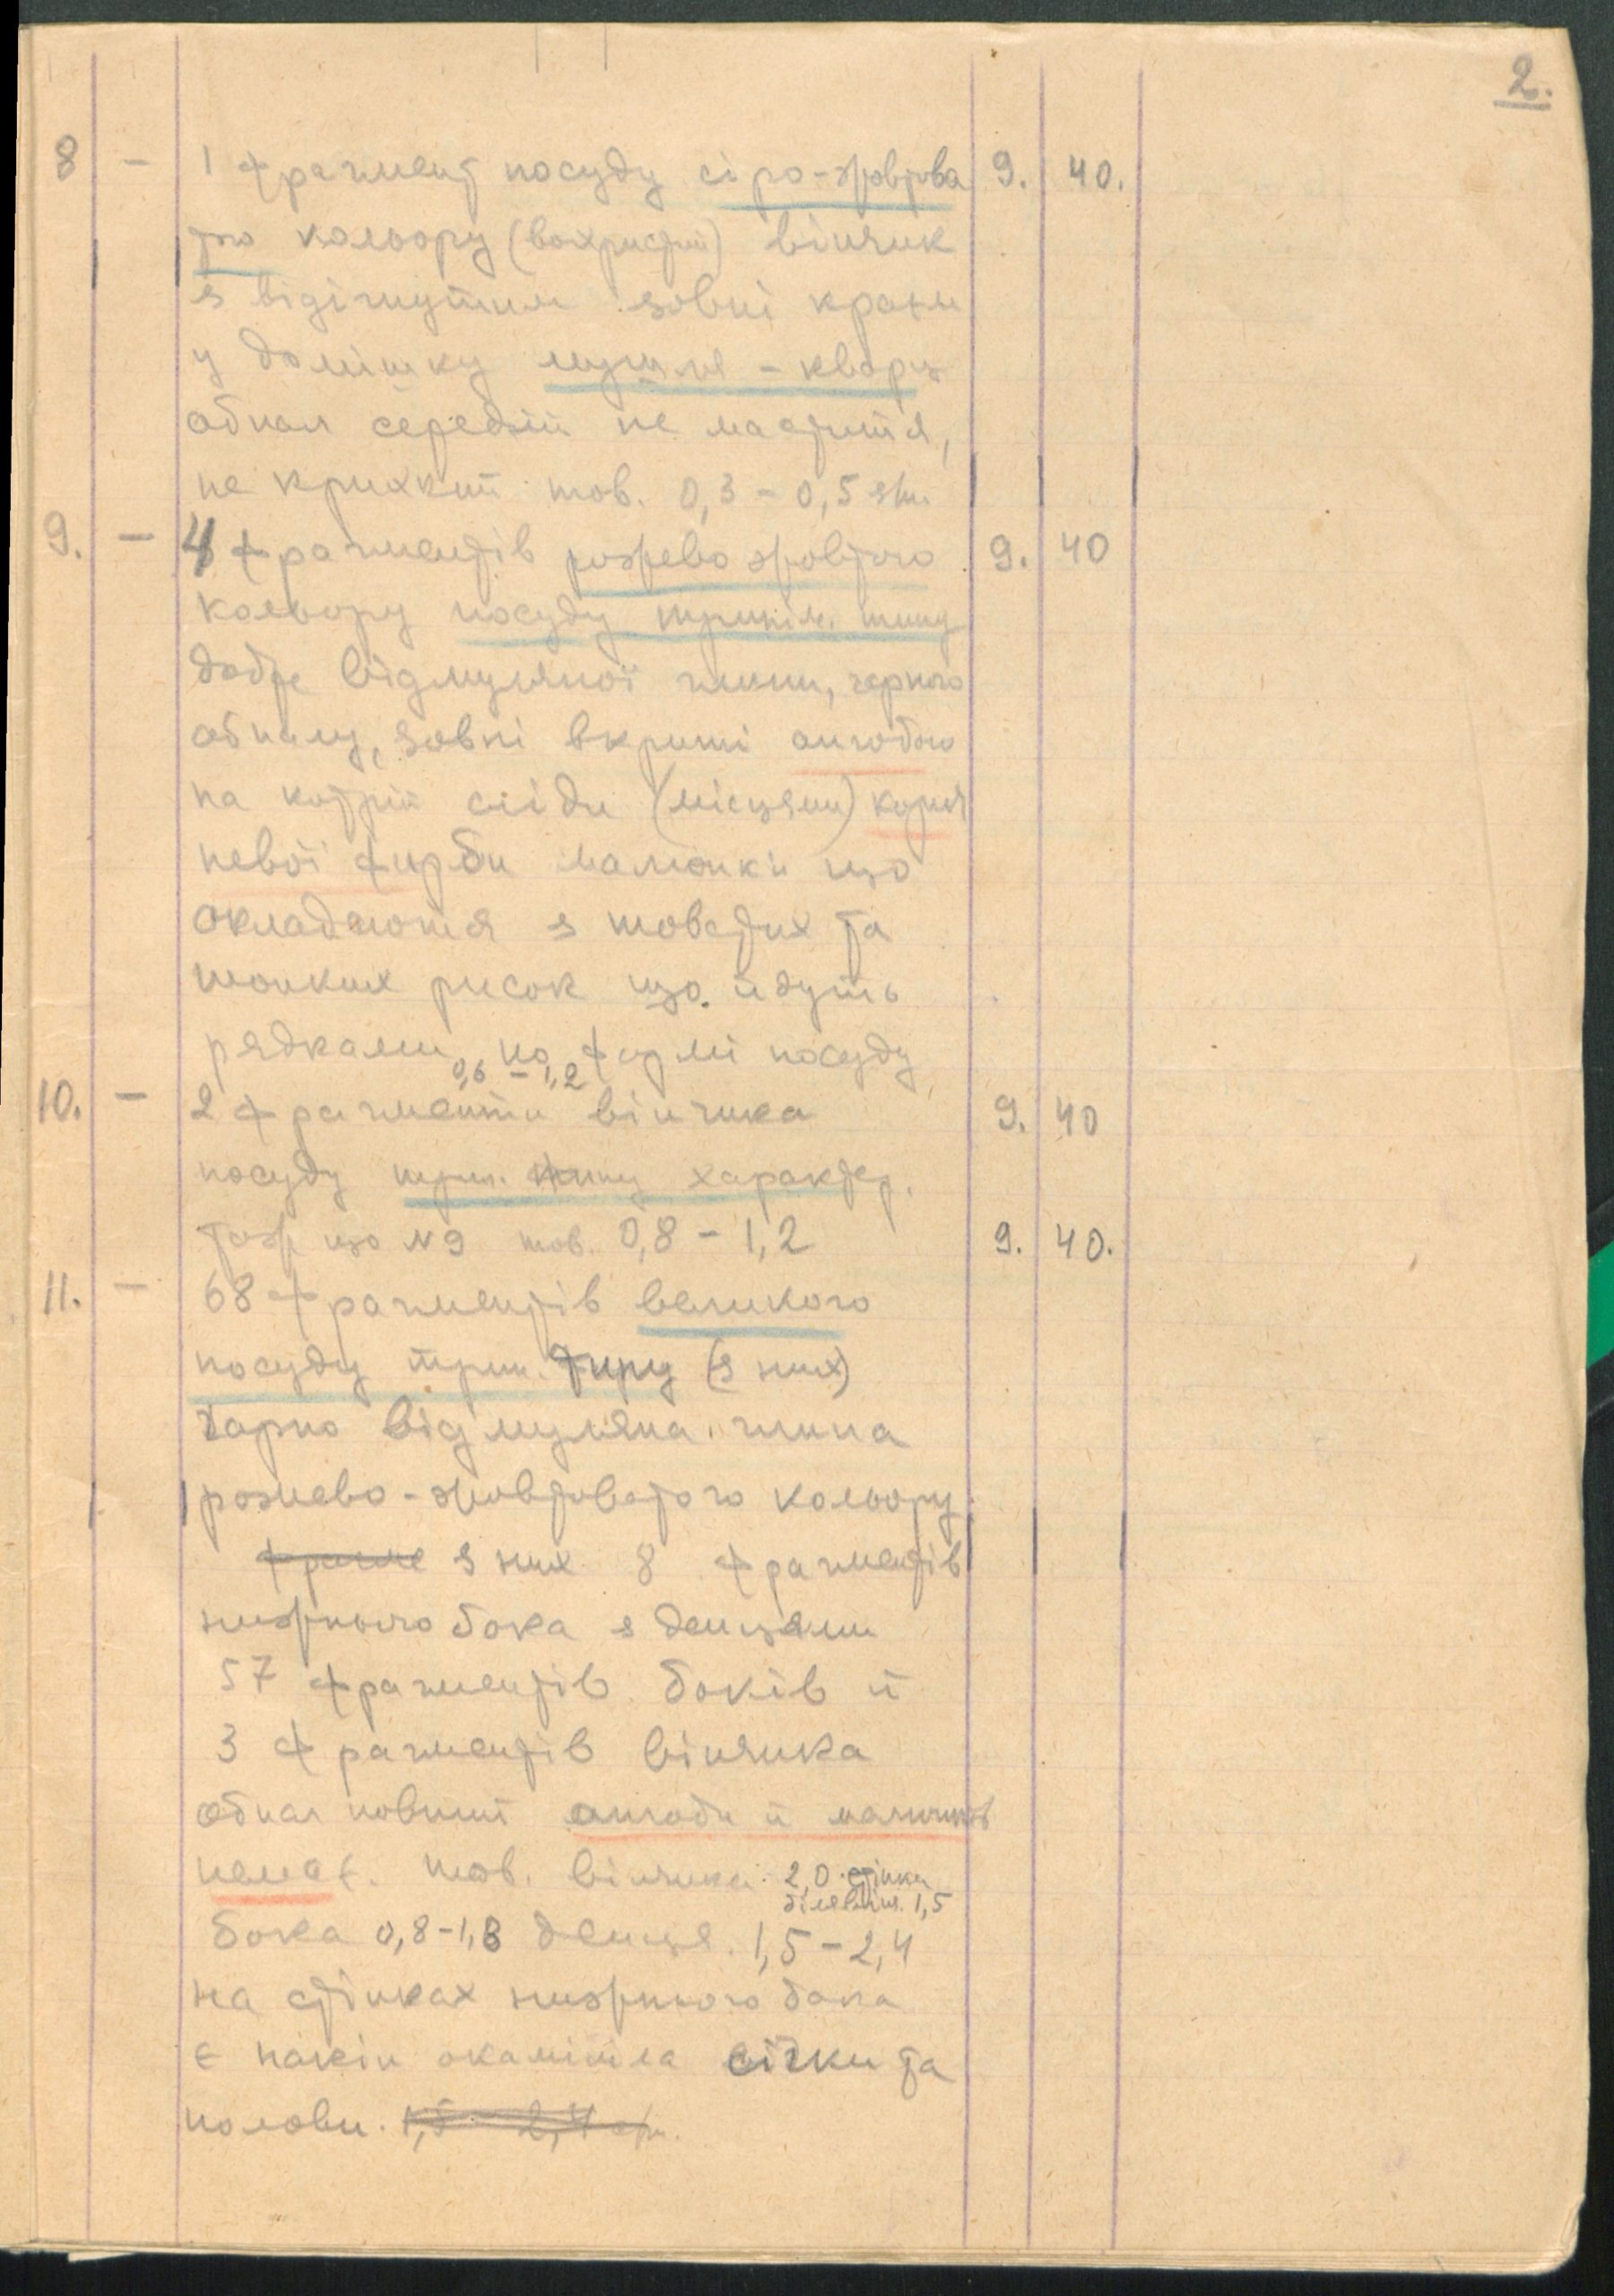 2.
8 — 1 фрагмент посуду сіро-жовтова 9. 40.
того кольору (вохристий) вінчик
з відігнутим зовні краєм
у домішку жорства - кварц
обпал середній не маститься,
не крихкий тов. 0,3 - 0,5 зтм.
9. — 4 фрагментів рожево жовтого 9. 40
кольору посуду трипіл. типу
добре відмуляної глини, гарного
обпалу, зовні вкриті ангобою
на котрій сліди (місцями) корич
невої фарби малюнки що
складаються з товстих та
тонких рисок що йдуть
рядками по формі посуду
0,6 - 1,2
10. — 2 фрагменти вінчика 9. 40
посуду трип. типу характер.
тож що № 9 тов. 0,8 - 1,2 9. 40.
11. — 68 фрагментів великого
посуду трип. типу (з них)
гарно відмуляна глина
рожево-жовтоватого кольору
фрагме з них 8 фрагментів
нижнього бока з денцями
57 фрагментів боків й
3 фрагментів вінчика
обпал повний ангоби й малюнків
немає. тов. вінчика 2,0 стінки
біля вінч. 1,5
бока 0,8-1,3 денця. 1,5 - 2,4
на стінках нижнього бока
є накіп окамініла січки та
полови. 1,5 - 2,4 зтм.